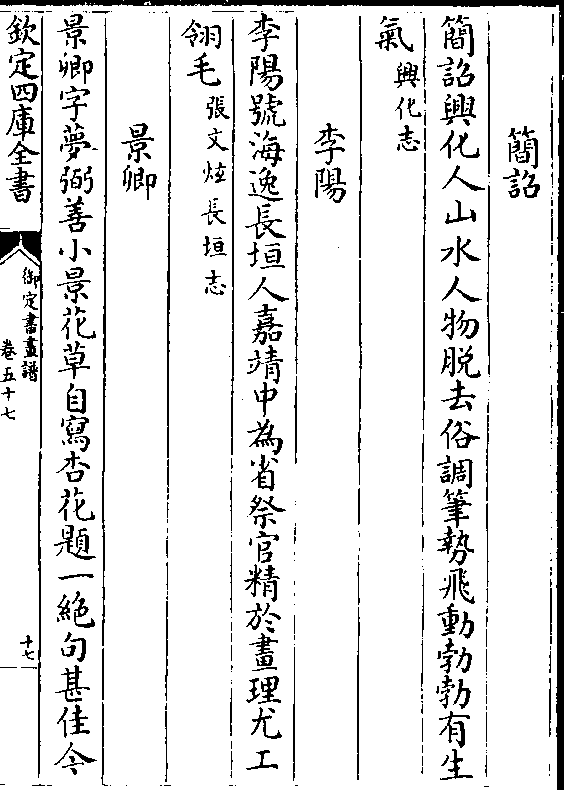 簡詔
簡詔興化人山水人物脱去俗調筆勢飛動勃勃有生
氣興化志
李陽
李陽號海逸長垣人嘉靖中為省祭官精於畫理尤工
翎毛張文炫長垣志
景卿
景卿字夢弼善小景花草自寫杏花題一絶句甚佳今
欽定四庫全書
御定書畫譜
卷五十七
十七